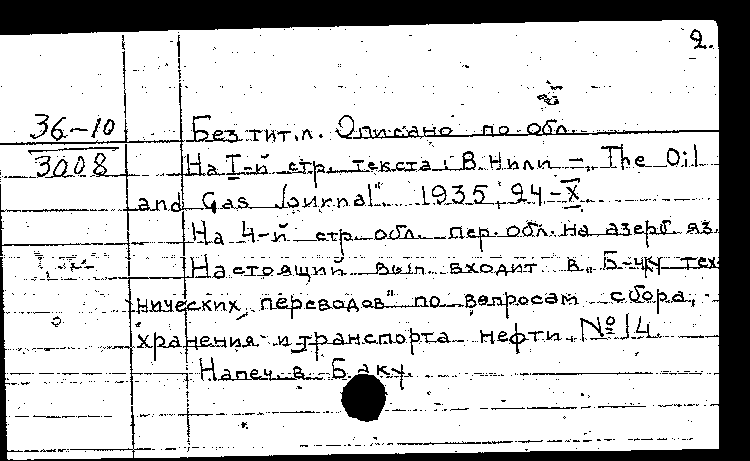 2.
36-10
3008
Без тит.л. Описано по обл.
На I-й стр. текста: В. Нили –„The Oil
and Gas Journal" 1935, 24-X.
На 4-й стр. обл. пер. обл. на азерб. яз.
Настоящий вып. входит в „Б-чку тех-
нических переводов" по вопросам сбора,
хранения и транспорта нефти, № 14.
Напеч. в Баку.